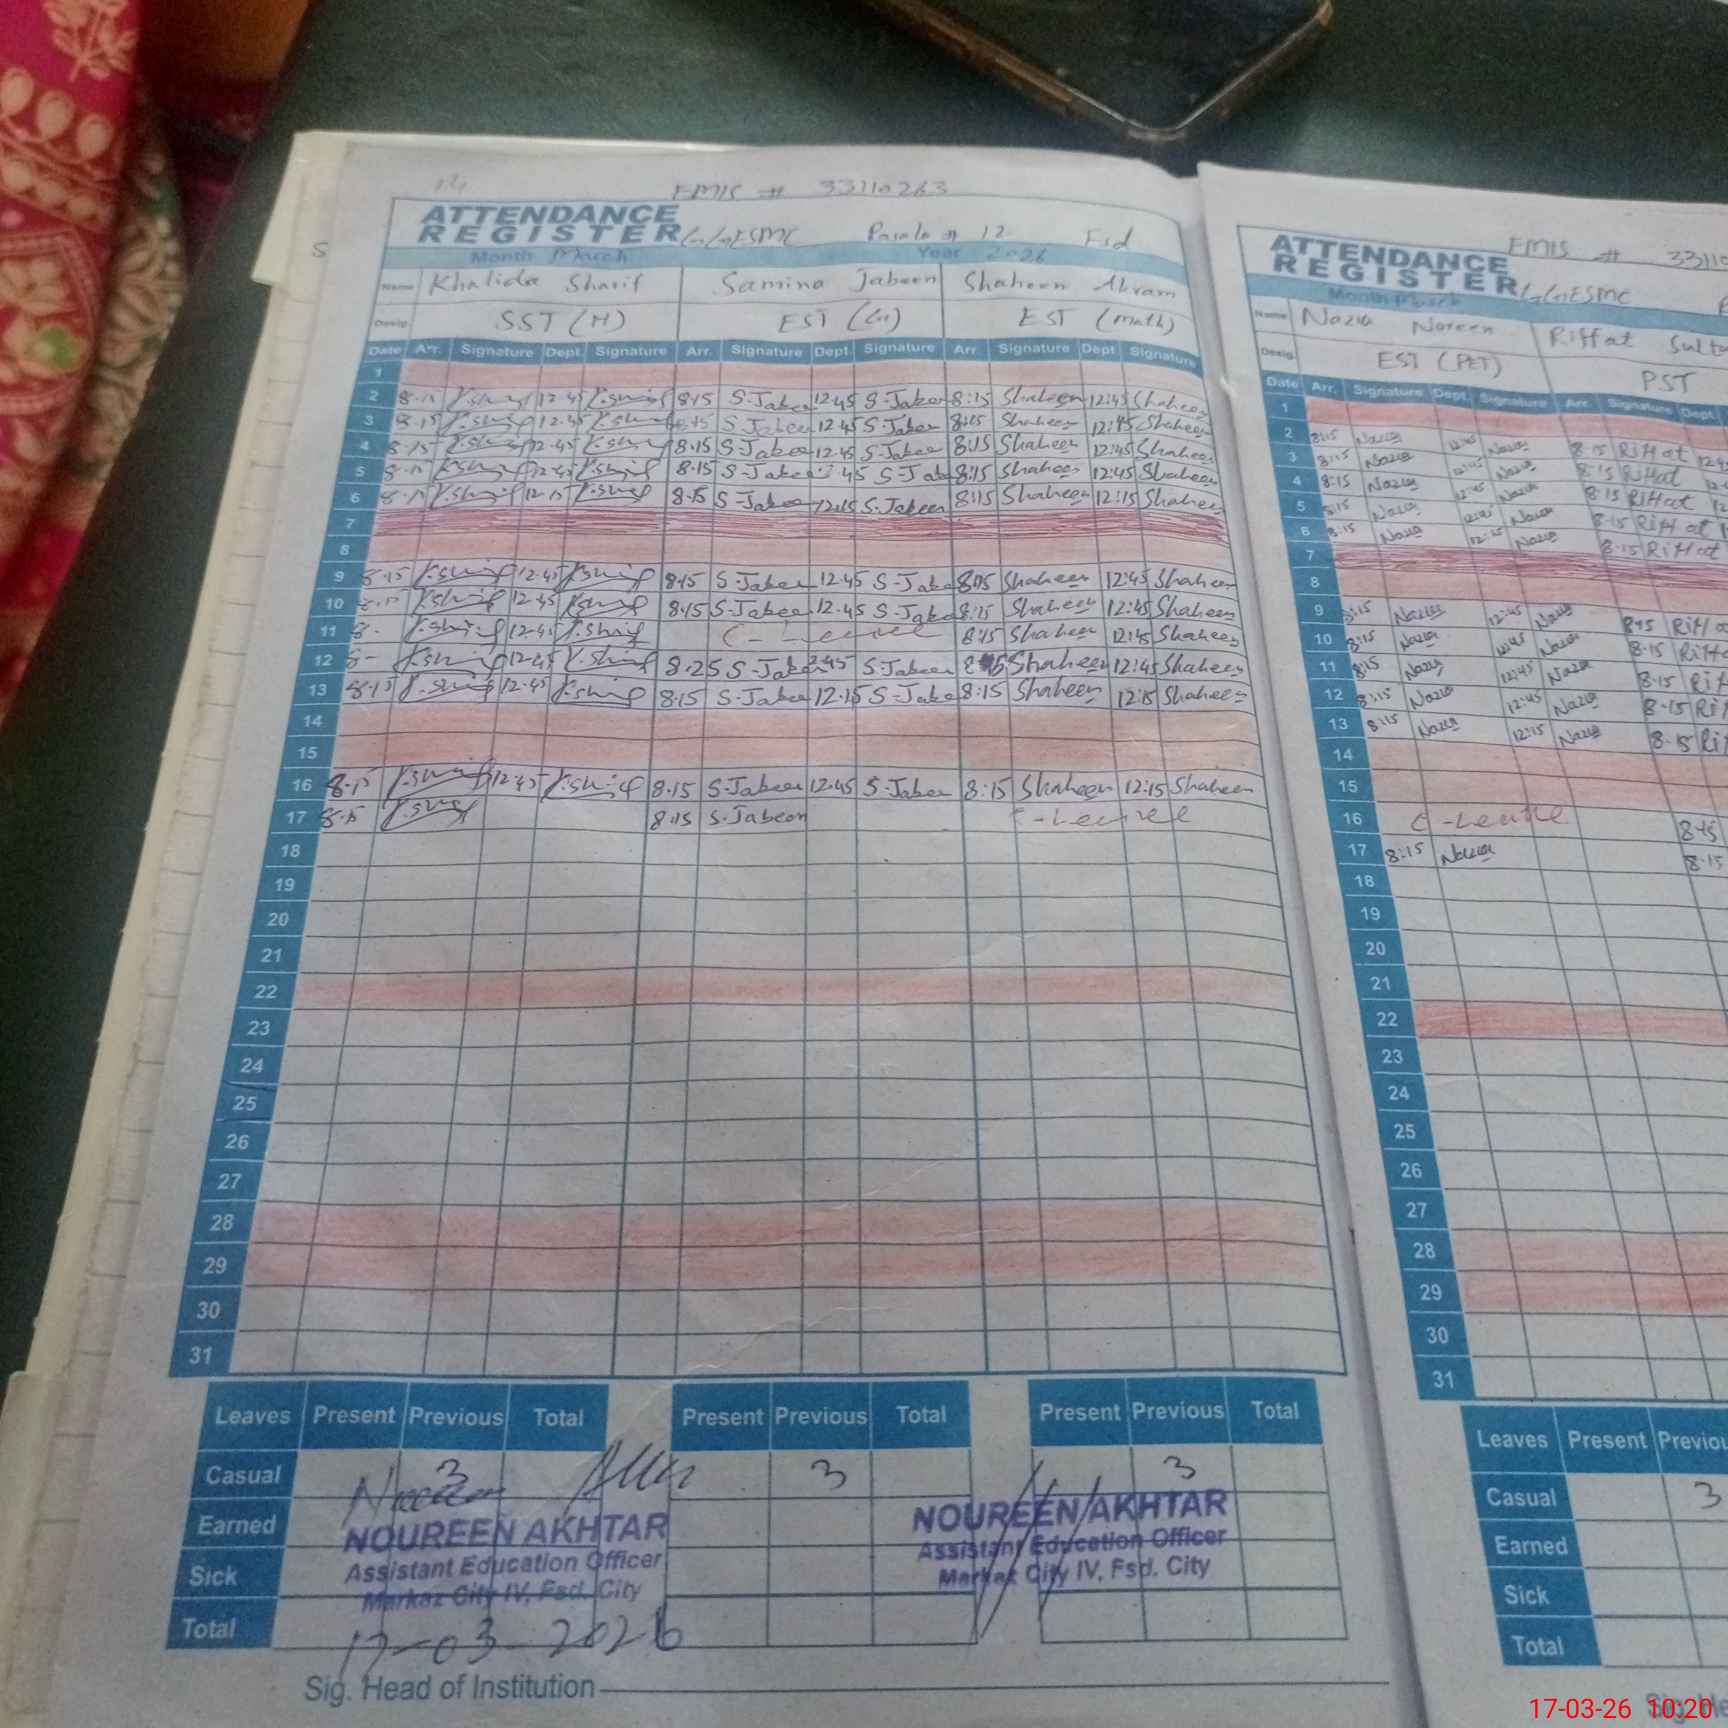 EMIS # 33110263
ATTENDANCE
REGISTER G.G.ESMC # 12 Fsd
Month March Year 2026
Name Khalida Sharif Samina Jabeen Shaheen Akram
Desig. SST (H) EST (G) EST (Math)
Date Arr. Signature Dept. Signature Arr. Signature Dept. Signature Arr. Signature Dept. Signature
1
2 8.15 K.Sharif 12.45 K.Sharif 8.15 S.Jabeen 12.45 S.Jabeen 8:15 Shaheen 12:45 Shaheen
3 8.15 K.Sharif 12.45 K.Sharif 8.15 S.Jabeen 12.45 S.Jabeen 8:15 Shaheen 12:45 Shaheen
4 8.15 K.Sharif 12.45 K.Sharif 8.15 S.Jabeen 12.45 S.Jabeen 8:15 Shaheen 12:45 Shaheen
5 8.15 K.Sharif 12.45 K.Sharif 8.15 S.Jabeen 45 S.Jab 8:15 Shaheen 12:45 Shaheen
6 8.15 K.Sharif 12.15 K.Sharif 8.15 S.Jabeen 12.15 S.Jabeen 8:15 Shaheen 12:15 Shaheen
7
8
9 8.15 K.Sharif 12.45 K.Sharif 8.15 S.Jabeen 12.45 S.Jabe 8:15 Shaheen 12:45 Shaheen
10 8.15 K.Sharif 12.45 K.Sharif 8.15 S.Jabeen 12.45 S.Jabe 8:15 Shaheen 12:45 Shaheen
11 8- K.Sharif 12.45 K.Sharif C-Leave 8:15 Shaheen 12:45 Shaheen
12 8- K.Sharif 12.45 K.Sharif 8.25 S.Jabeen 2.45 S.Jabeen Shaheen 12:45 Shaheen
13 8.15 K.Sharif 12.45 K.Sharif 8.15 S.Jabeen 12.15 S.Jabee 8:15 Shaheen 12:15 Shaheen
14
15
16 8.15 K.Sharif 12.45 K.Sharif 8.15 S.Jabeen 12.45 S.Jabeen 8:15 Shaheen 12:15 Shaheen
17 8.15 K.Sharif 8.15 S.Jabeen C-Leave
18
19
20
21
22
23
24
25
26
27
28
29
30
31
Leaves Present Previous Total Present Previous Total Present Previous Total
Casual 3 3 3
Earned
Sick
Total
NOUREEN AKHTAR
Assistant Education Officer
Markaz City IV, Fsd. City
17-03-2026
NOUREEN AKHTAR
Assistant Education Officer
Markaz City IV, Fsd. City
Sig. Head of Institution
EMIS # 3311
ATTENDANCE
REGISTER G.G.ESMC
Month March
Name Nazia Noreen Riffat Sult
Desig. EST (PET) PST
Date Arr. Signature Dept. Signature Arr. Signature Dept.
1
2 8:15 Nazia 12:45 Nazia 8.15 Riffat 12.4
3 8:15 Nazia 12:45 Nazia 8.15 Riffat
4 8:15 Nazia 12:45 Nazia 8.15 Riffat
5 8:15 Nazia 12:45 Nazia 8.15 Riffat
6 8:15 Nazia 12:15 Nazia 8.15 Riffat
7
8
9 8:15 Nazia 12:45 Nazia 8.15 Riffa
10 8:15 Nazia 12:45 Nazia 8.15 Riffa
11 8:15 Nazia 12:45 Nazia 8.15 Rif
12 8:15 Nazia 12:45 Nazia 8.15 Rif
13 8:15 Nazia 12:15 Nazia 8.15 Ri
14
15
16 C-Leave 8.15
17 8:15 Nazia 8.15
18
19
20
21
22
23
24
25
26
27
28
29
30
31
Leaves Present Previou
Casual 3
Earned
Sick
Total
17-03-26 10:20